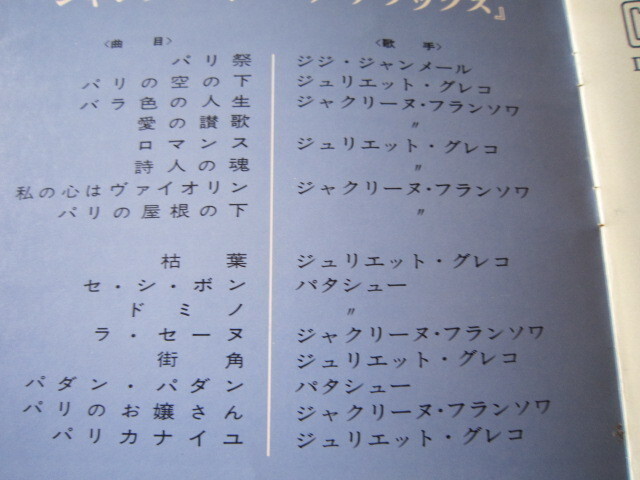 〈曲目〉 〈歌手〉
パリ祭 ジジ・ジャンメール
パリの空の下 ジュリエット・グレコ
バラ色の人生 ジャクリーヌ・フランソワ
愛の讃歌 〃
ロマンス ジュリエット・グレコ
詩人の魂 〃
私の心はヴァイオリン ジャクリーヌ・フランソワ
パリの屋根の下 〃
枯葉 ジュリエット・グレコ
セ・シ・ボン パタシュー
ドミノ 〃
ラ・セーヌ ジャクリーヌ・フランソワ
街角 ジュリエット・グレコ
パダン・パダン パタシュー
パリのお嬢さん ジャクリーヌ・フランソワ
パリカナイユ ジュリエット・グレコ